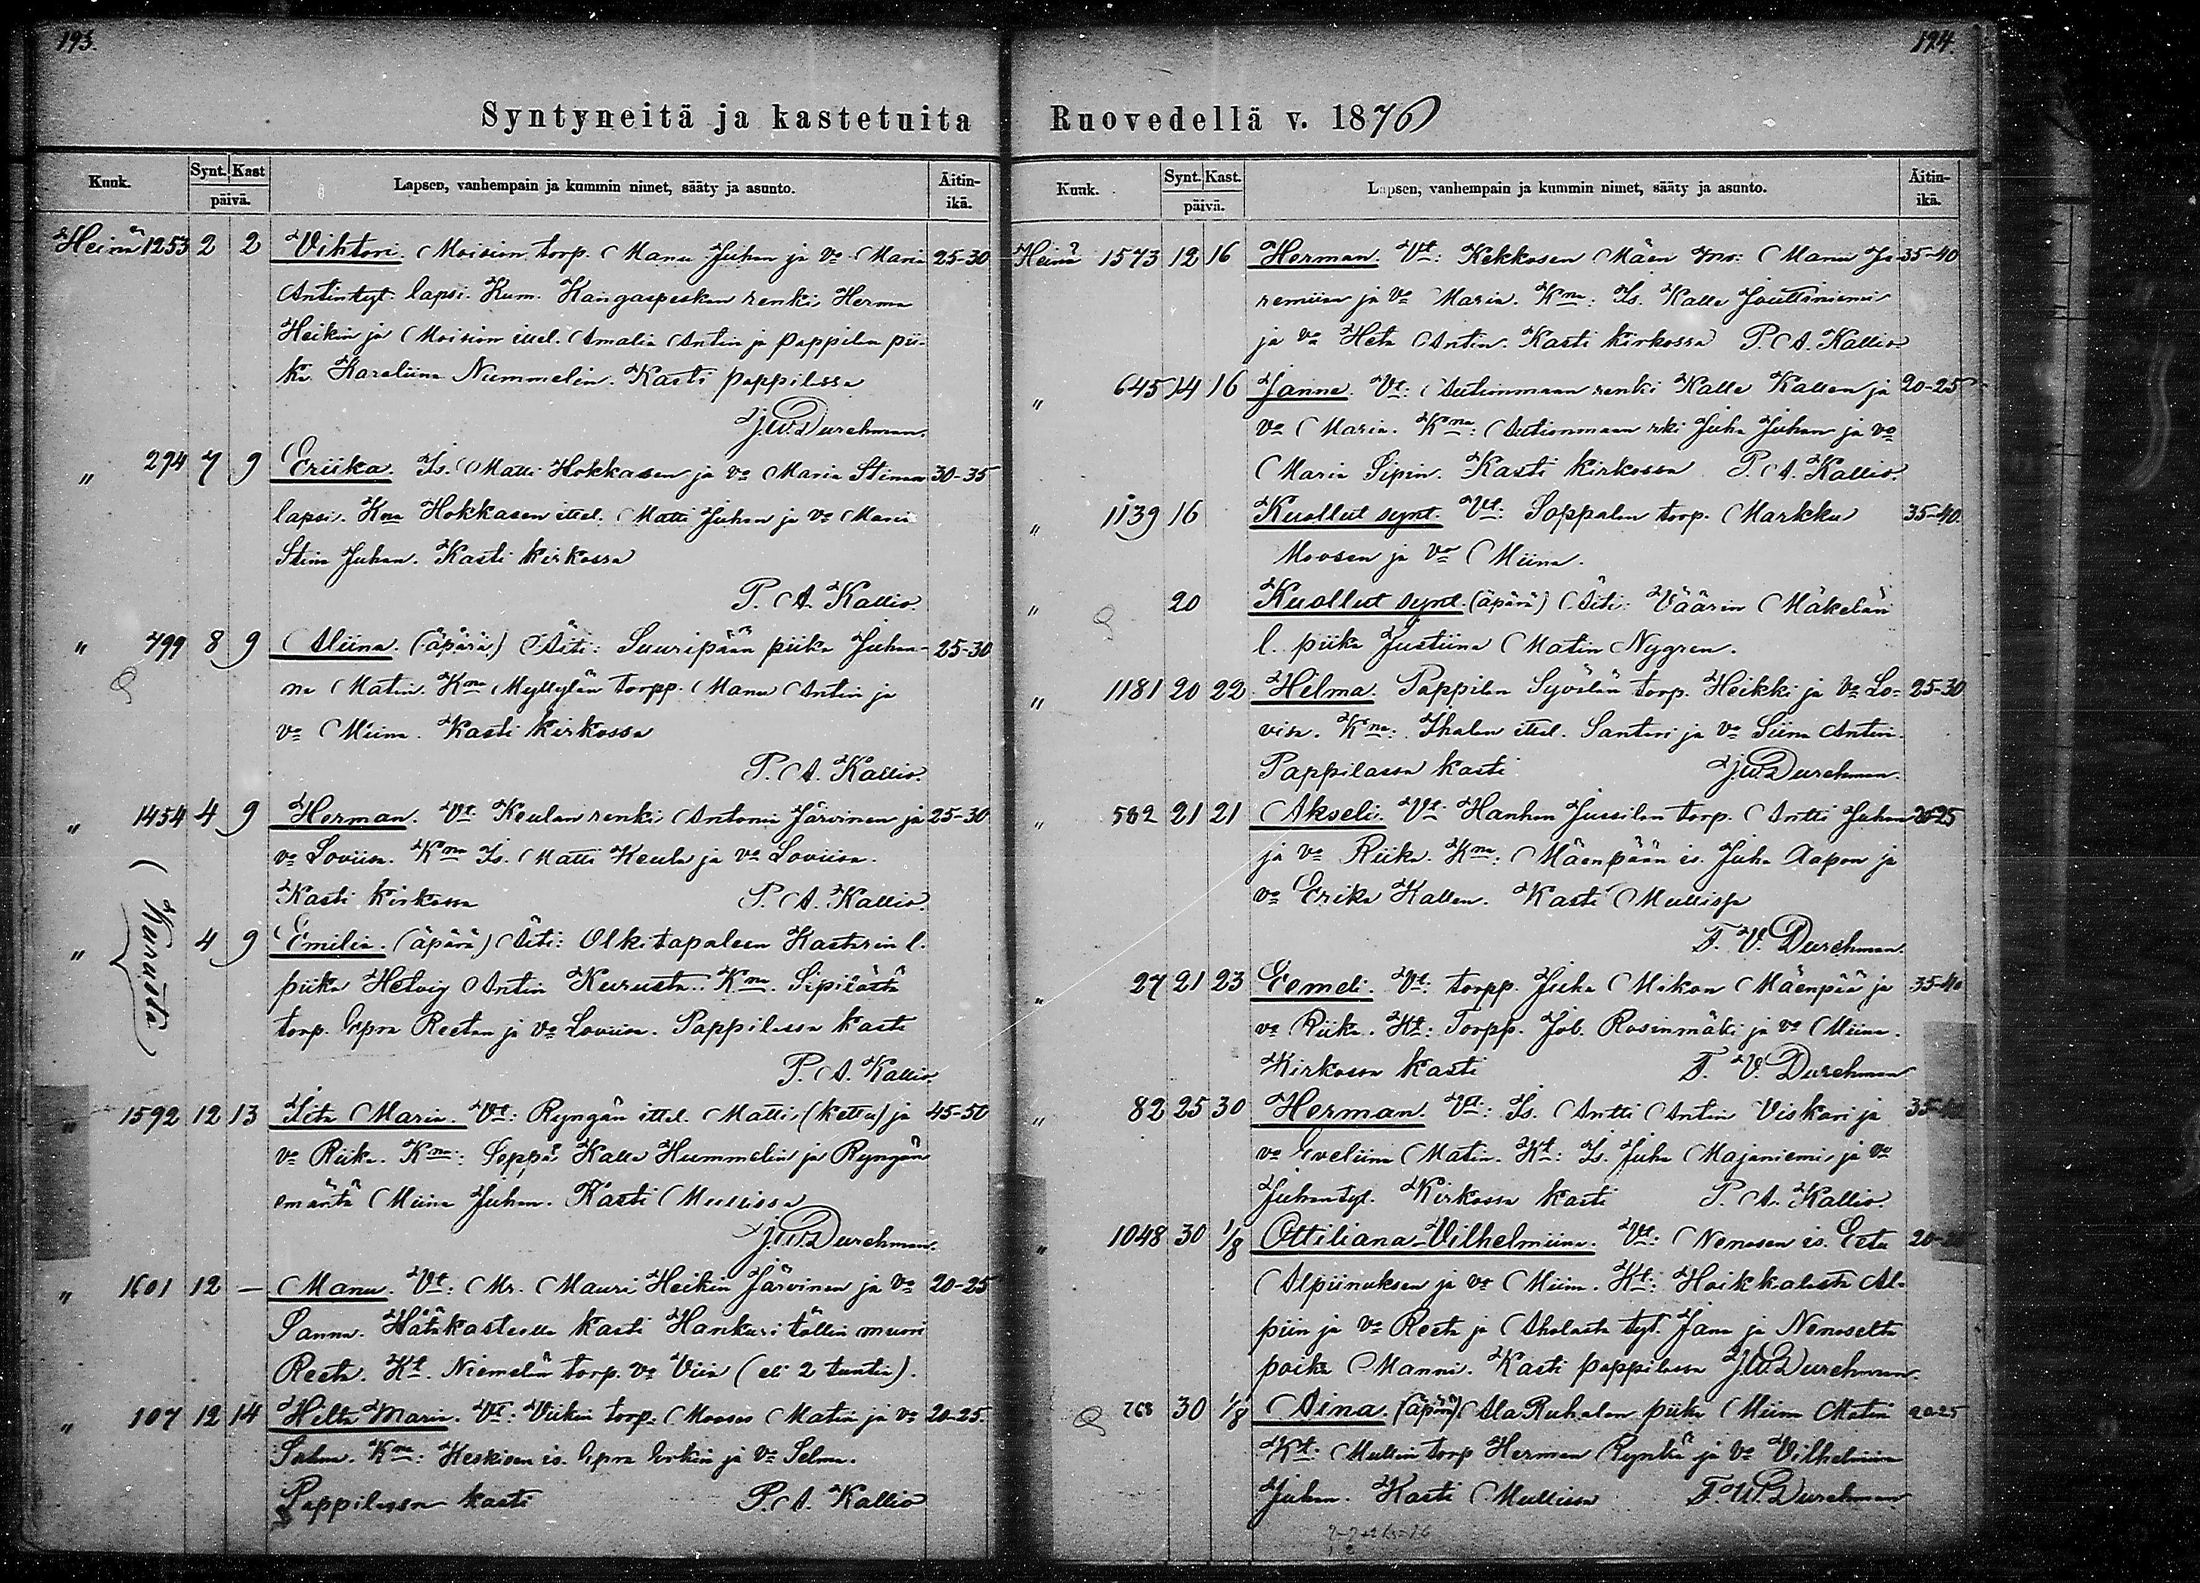 193.
Syntyneitä ja kastetuita
Kuuk. Synt. Kast päivä. Lapsen, vanhempain ja kummin nimet, sääty ja asunto. Äitin-ikä.
Heinä 1253 2 2 Vihtori. Moision torp. Manu Juhan ja vo Maria 25-30
Antintyt. lapsi. Kum. Kangaspeskan renki Herma
Heikin ja Moision ittel. Amalia Antin ja pappilan pii-
ka Karoliina Nummelin. Kasti pappilassa
J.W. Durchman.
" 294 7 9 Eriika. Is. Matti Hokkasen ja vo Maria Stinan 30-35
lapsi. Kna Hokkasen ittel. Matti Juhan ja vo Maria
Stina Juhan. Kasti kirkossa
P. A. Kallio.
" 799 8 9 Aliina. (äpärä) Äiti: Suuripään piika Juhan- 25-30
na Matin. Kna Myllylän torpp. Manu Antin ja
vo Miina. Kasti kirkossa
P. A. Kallio.
" 1454 4 9 Herman. Vt. Keulan renki Antoni Järvinen ja 25-30
vo Loviisa. Kna Is. Matti Keula ja vo Loviisa.
Kasti kirkossa P. A. Kallio.
(Kurusta)
" 4 9 Emilia. (äpärä) Äiti: Olkitapaleen Kasterin l.
piika Helvig Antin Kurusta. Kna. Sipilästä
torp. Epra Reetan ja vo Loviisa. Pappilassa kasti
P. A. Kallio.
" 1592 12 13 Iita Maria. Vt: Ryngän ittel. Matti (Kettu) ja 45-50
vo Riika. Kna: Seppä Kalla Hummelin ja Ryngän
emäntä Miina Juhan. Kasti Mullissa
J.W. Durchman.
" 1601 12 — Manu. Vt: Mr. Mauri Heikin Järvinen ja vo 20-25
Sanna. Hätäkasteella kasti Hankuri töllin muori
Reeta. Kt. Niemelän torp. vo Viia (eli 2 tuntia).
" 107 12 14 Hilta Maria. Vt: Viikin torp. Mooses Matin ja vo 20-25.
Salma. Kna: Keskisen is. Epra Erkin ja vo Selma.
Pappilassa kasti P. A. Kallio
194.
Ruovedellä v. 1876
Kuuk. Synt. Kast. päivä. Lapsen, vanhempain ja kummin nimet, sääty ja asunto. Äitin-ikä.
Heinä 1573 12 16 Herman. Vt: Kekkosen Mäen mr: Manu Je- 35-40
remiian ja vo Maria. Kna: Is. Kalle Jouttiniemi
ja vo Heta Antin. Kasti kirkossa P. A. Kallio
" 645 14 16 Janne. Vt: Autionmaan renki Kalle Kallen ja 20-25
vo Maria. Kna: Autionmaan rki Juha Juhan ja vo
Maria Sipin. Kasti kirkossa P. A. Kallio.
" 1139 16 Kuollut synt. Vt: Soppalan torp. Markku 35-40.
Moosen ja vo Miina.
" 20 Kuollut synt. (äpärä) Äiti: Väärin Mäkelän
l. piika Justiina Matin Nygren.
" 1181 20 22 Helma. Pappilan Syvälän torp. Heikki ja vo Lo- 25-30
visa. Kna: Ihalan ittel. Santeri ja vo Siina Antin.
Pappilassa kasti J.W. Durchman.
" 582 21 21 Akseli. Vt. Hanhon Jussilan torp. Antti Juhan 20-25
ja vo Riika. Kna: Mäenpään is. Juha Aapon ja
vo Erika Kallen. Kasti Mullissa
F. V. Durchman.
" 27 21 23 Eemeli. Vt: torpp. Juha Mikon Mäenpää ja 35-40
vo Riika. Kt: Torpp. Job. Rosinmäki ja vo Miina.
Kirkossa kasti F. V. Durchman
" 82 25 30 Herman. Vt: Is. Antti Antin Viskari ja 35-40
vo Eveliina Matin. Kt: Is. Juha Majaniemi ja vo
Juhantyt. Kirkossa kasti P. A. Kallio.
" 1048 30 1/8 Ottiliana Vilhelmiina. Vt: Nenosen is. Eetu 20-
Alpiinuksen ja vo Miina. Kt: Hoikkalasta Al-
piin ja vo Reeta ja Aholasta tyt. Jana ja Nenoselta
poika Manni. Kasti pappilassa J.W. Durchman.
768 30 1/8 Aina. (äpärä) Ala Ruhalan piika Miina Matin 20-25
Kt: Mullin torp Herman Ryntä ja vo Vilhelmiina
Juhan. Kasti Mullissa F. W. Durchman